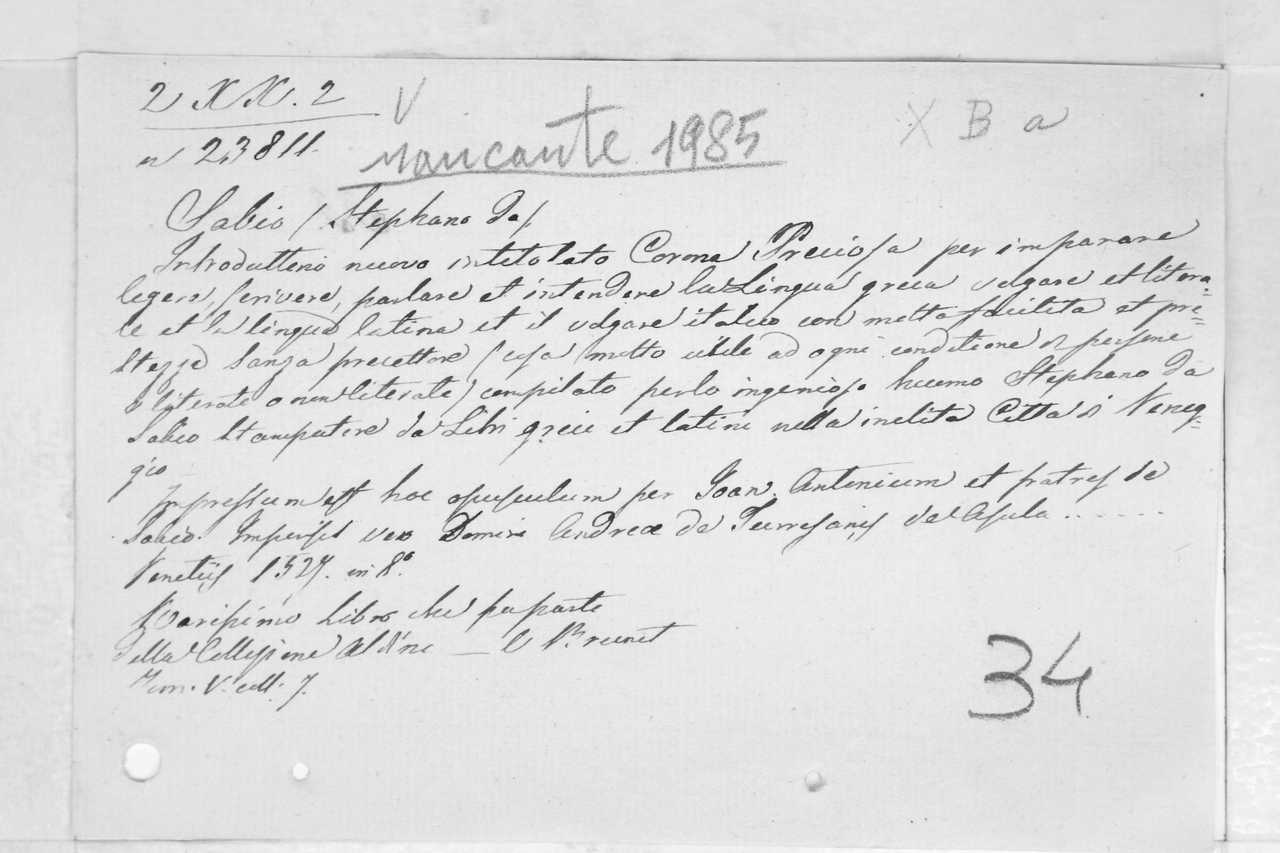 2 XX. 2 V
n 23811. Mancante 1985 X B a
Sabio (Stephano da)
Introduttorio nuovo intitolato Corona Preciosa per imparare
legere, scrivere, parlare et intendere la Lingua greca volgare et litera=
le et la lingua latina et il volgare italico con molta facilita et pre=
stezza sanza precettore (cosa molto utile ad ogni conditione di persone
o literate o non literate) compilato per lo ingenioso huomo Stephano da
Sabio stampatore da Libri greci et latini nella inclita Citta di Vineg=
gia
Impressum est hoc opusculum per Joan. Antonium et fratres de
Sabio. Impensis vero Domini Andreae de Turresanis de Asula ......
Venetiis 1527. in 8.º
Rarissimo Libro che fa parte
della Collezione Aldina — V Brunet
Tom. V. coll. 7.
34